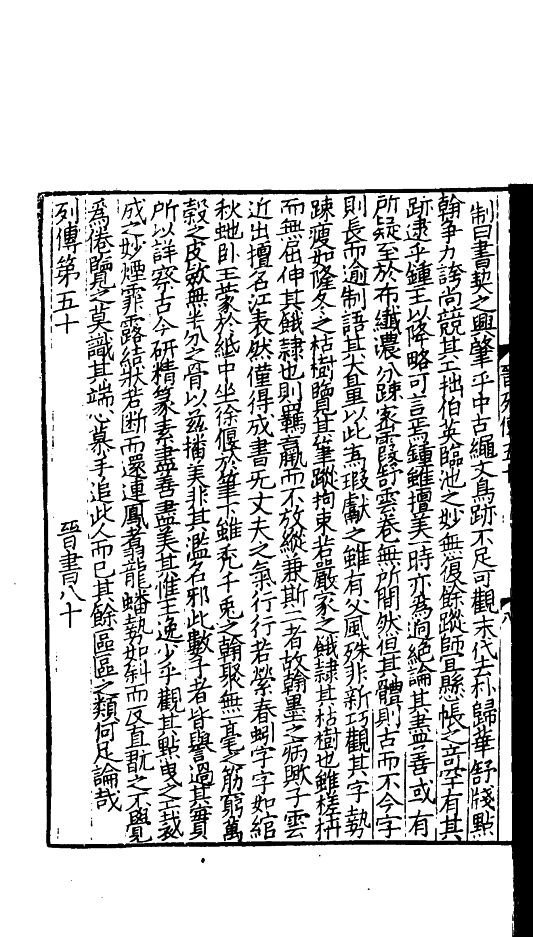 制曰書契之興肇乎中古繩文鳥跡不足可觀末代去朴歸華舒牋點
翰爭力誇尚競其工拙伯英臨池之妙無復餘蹤師宜懸帳之奇罕有其
跡逮乎鍾王以降略可言焉鍾雖擅美一時亦為迥絕論其盡善或有
所疑至於布纖濃分疎密霞舒雲卷無所間然但其體則古而不今字
則長而逾制語其大量以此為瑕獻之雖有父風殊非新巧觀其字勢
踈瘦如隆冬之枯樹覽其筆蹤拘束若嚴家之餓隸其枯樹也雖槎枿
而無屈伸其餓隸也則羈羸而不放縱兼斯二者故翰墨之病歟子雲
近出擅名江表然僅得成書无丈夫之氣行行若縈春蚓字字如綰
秋虵卧王蒙於紙中坐徐偃於筆下雖禿千兔之翰聚無一毫之筋窮萬
穀之皮斂無半分之骨以茲播美非其濫名邪此數子者皆譽過其實
所以詳察古今研精篆素盡善盡美其惟王逸少乎觀其點曳之工裁
成之妙煙霏露結狀若断而還連鳳翥龍蟠勢如斜而反直翫之不覺
為倦覽之莫識其端心慕手追此人而已其餘區區之類何足論哉
列傳第五十 晉書八十